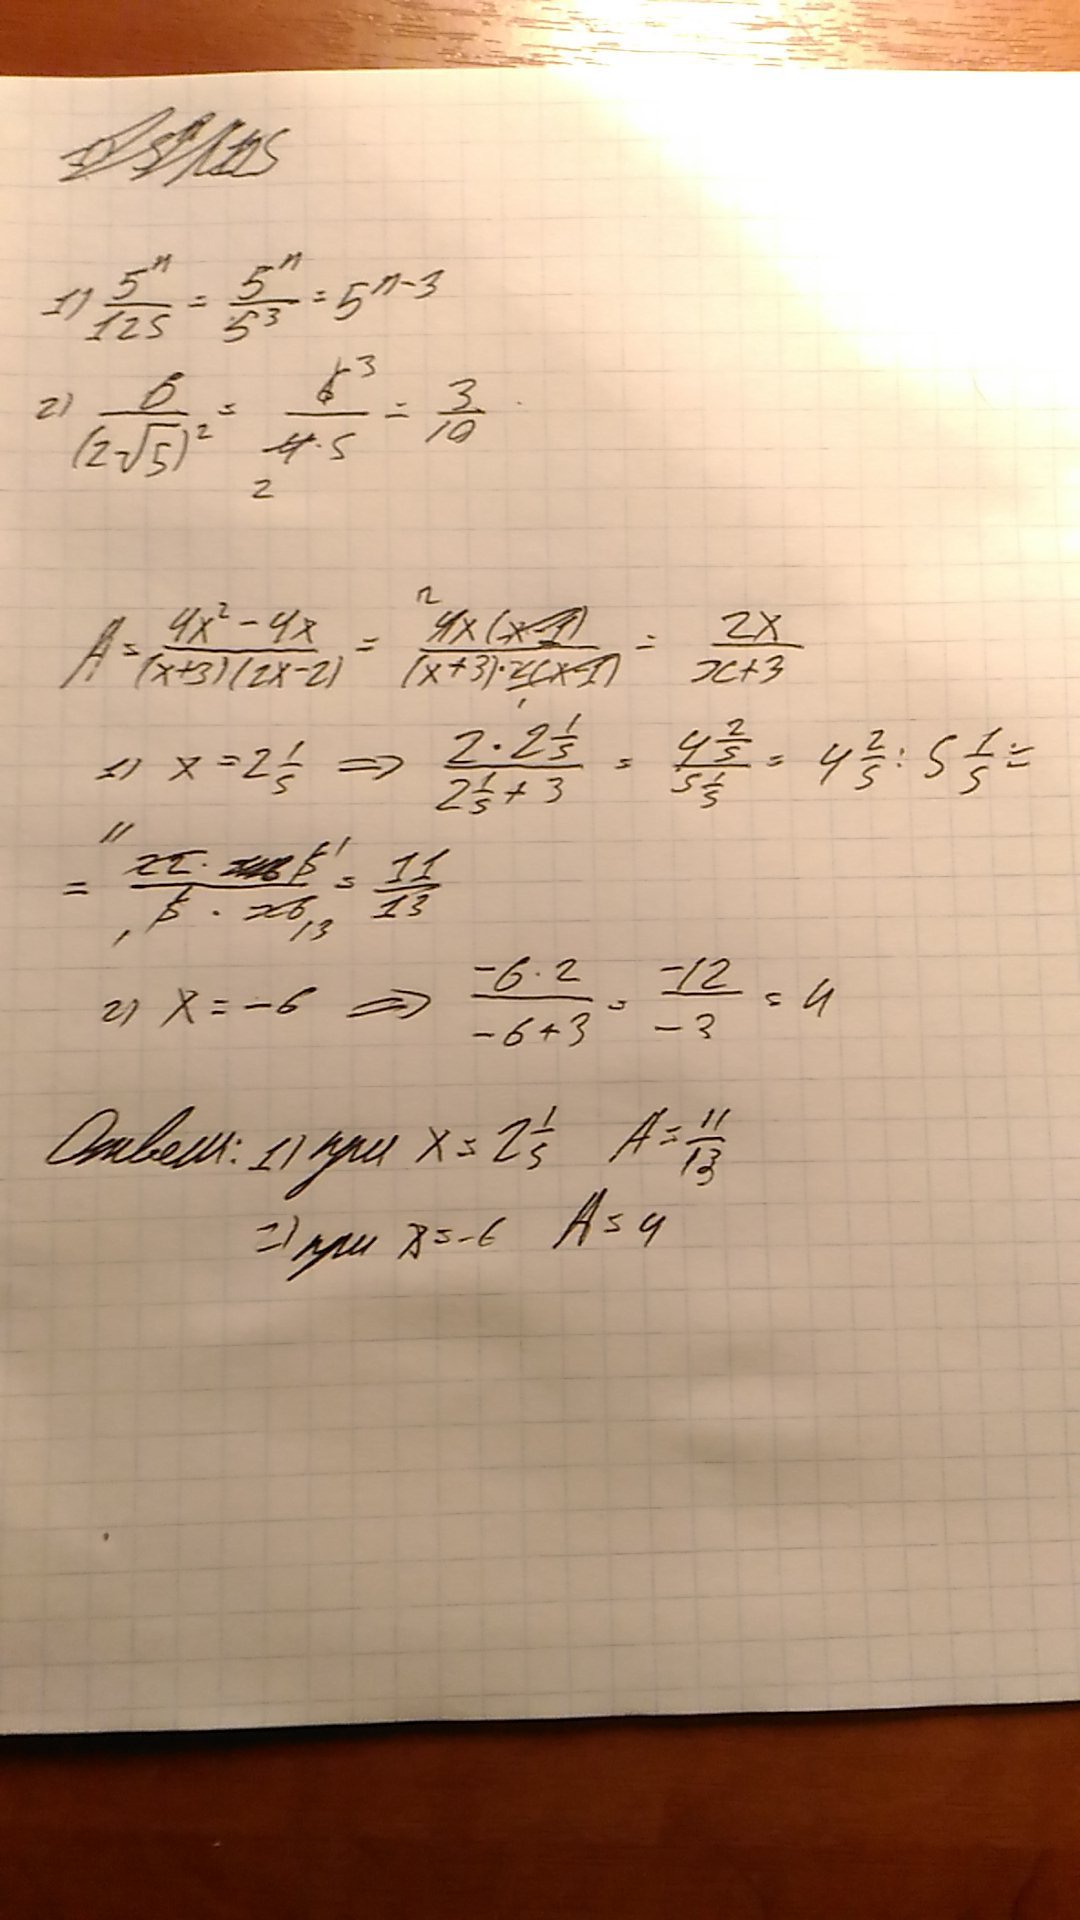 1) 5^n/125 = 5^n/5^3 = 5^(n-3)
2) 6/(2√5)^2 = 6^3/(4·5)_2 = 3/10
A = (4x^2 - 4x)/((x+3)(2x-2)) = ^2 4x(x-1)/((x+3)·2(x-1)) = 2x/(x+3)
1) x = 2 1/5 ⇒ (2·2 1/5)/(2 1/5 + 3) = (4 2/5)/(5 1/5) = 4 2/5 : 5 1/5 =
= (^11 22 · 5^1)/(_1 5 · 26_13) = 11/13
2) x = -6 ⇒ (-6·2)/(-6+3) = -12/-3 = 4
Ответ: 1) при x = 2 1/5 A = 11/13
2) при x = -6 A = 4